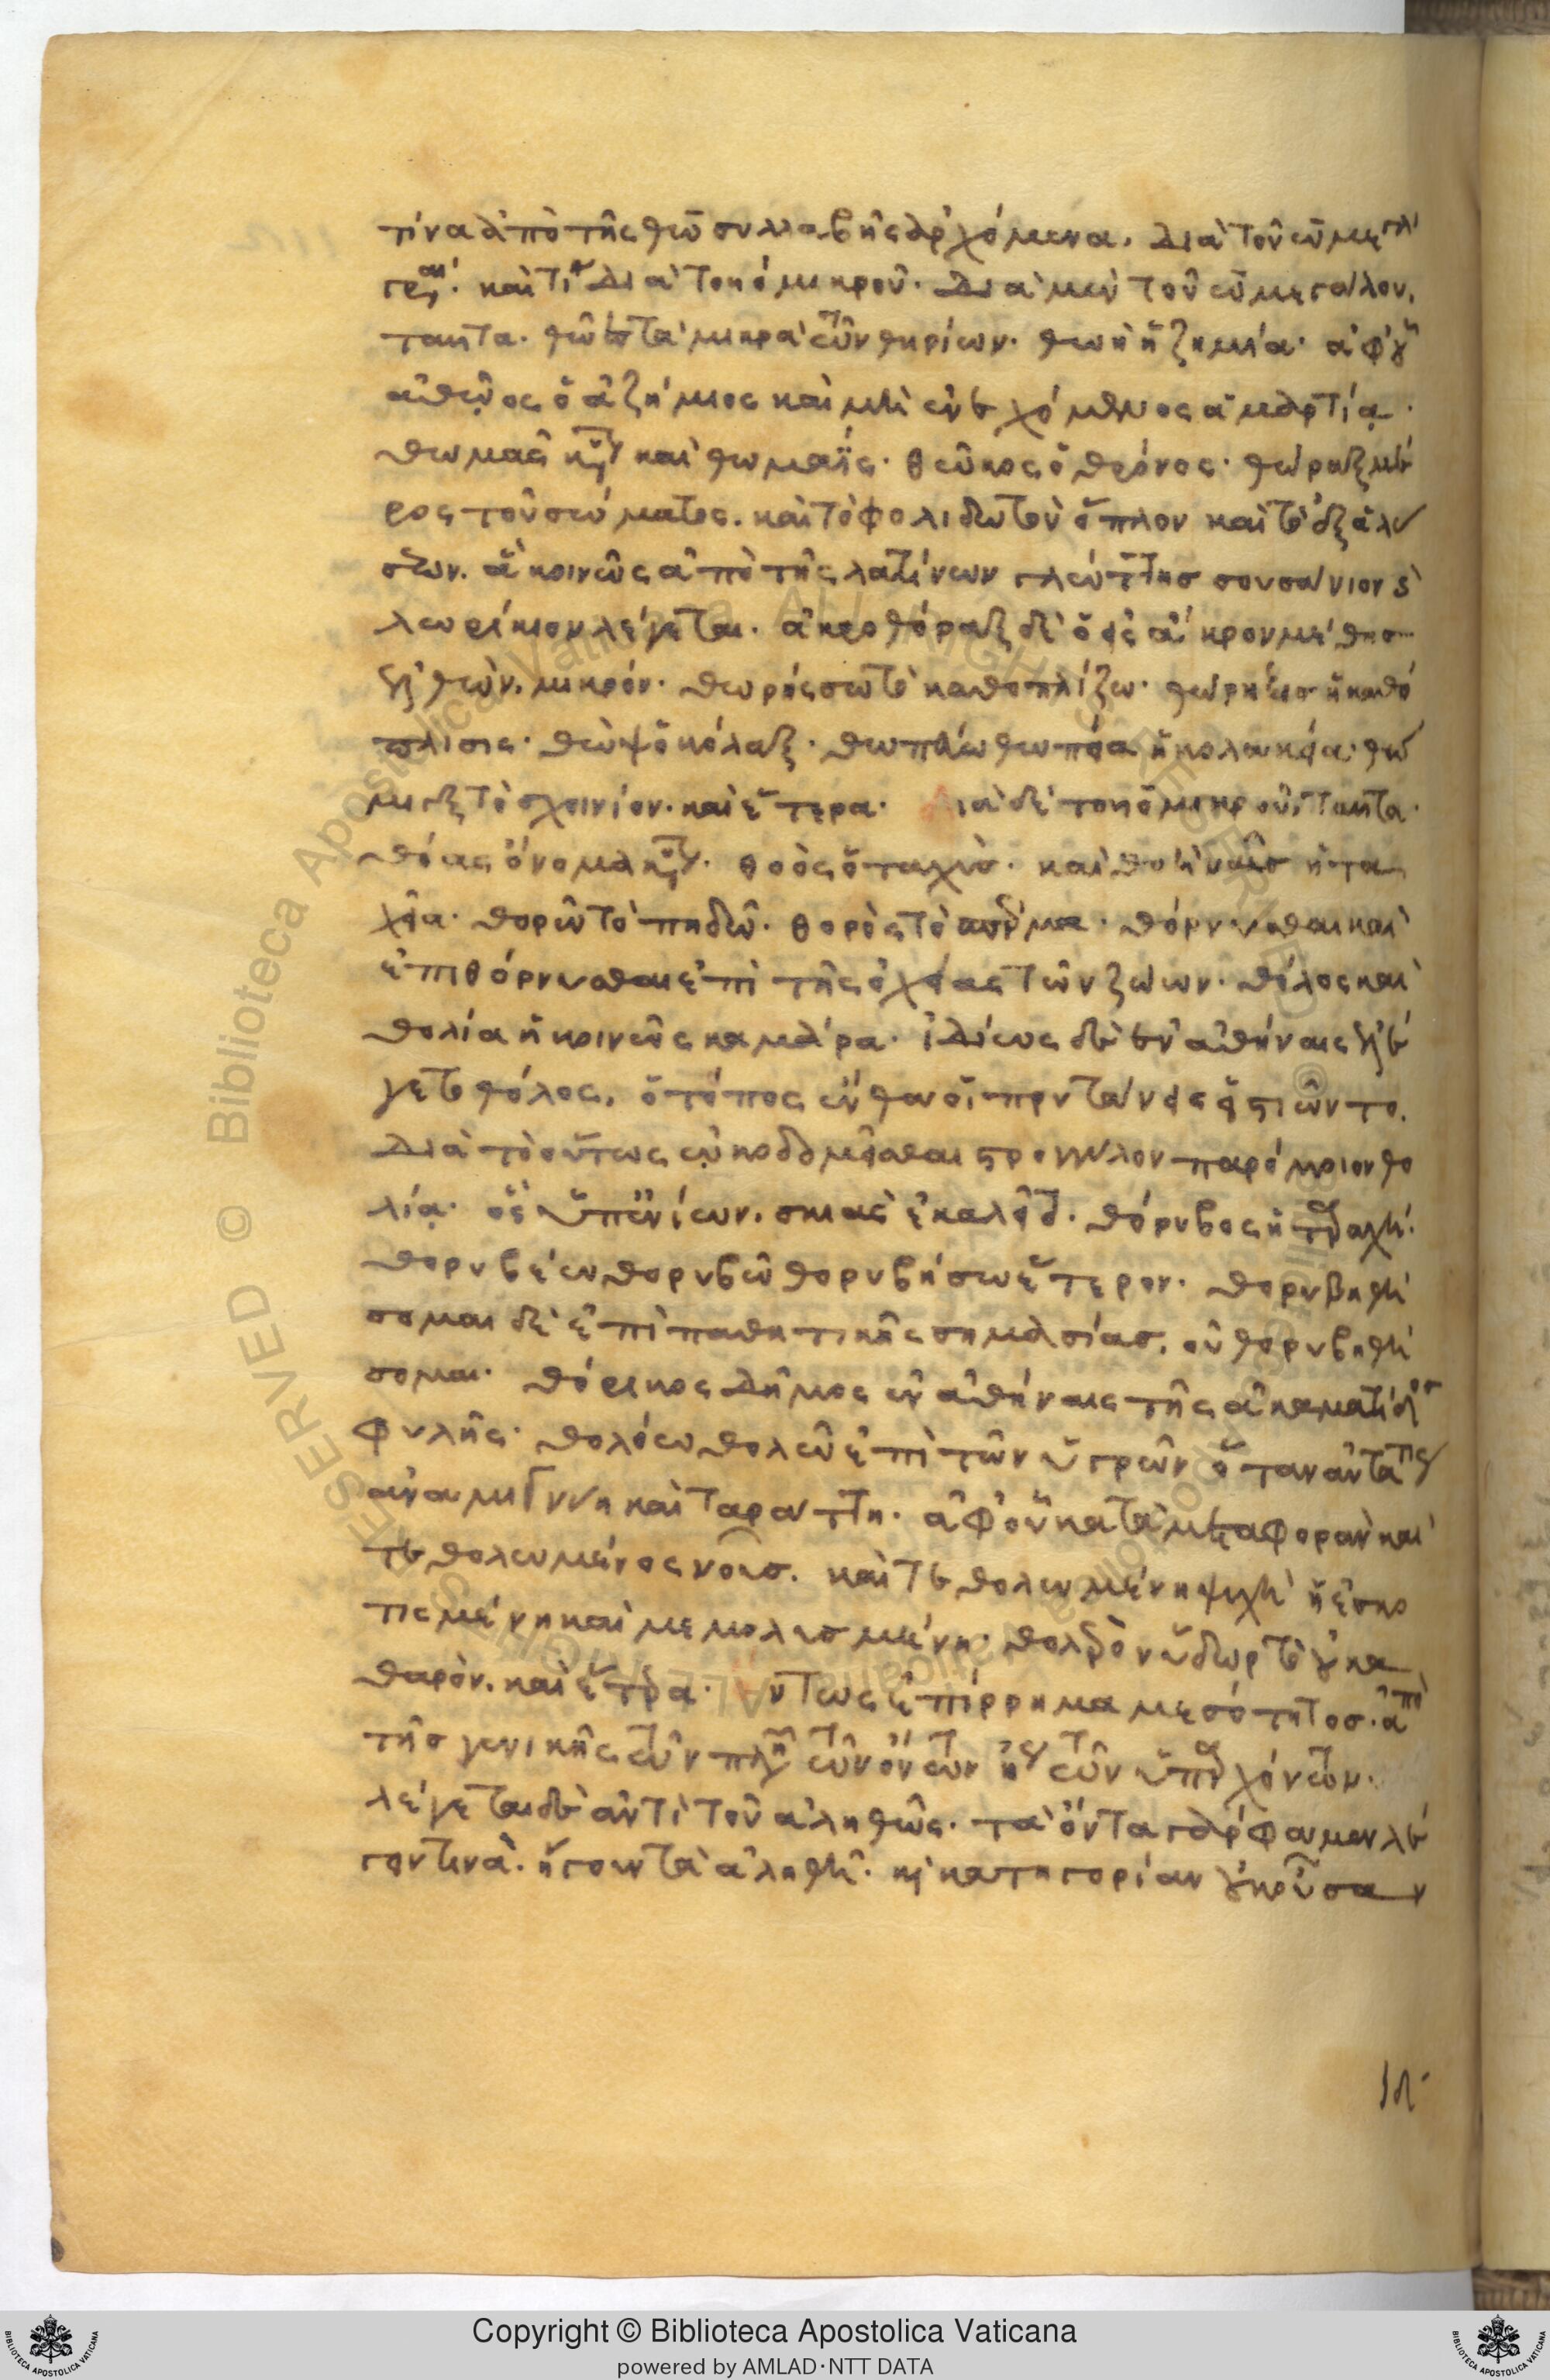 τινα ἀπὸ τῆς θω συλλαβῆς ἀρχόμενα. διὰ τοῦ ω μεγά
γρ. καί τινα διὰ τοῦ ο μικροῦ. διὰ μὲν τοῦ ω μεγάλου,
ταῦτα. θῶες τὰ μικρὰ τῶν θηρίων. θωὴ ἡ ζημία. ἀφ' οὗ
ἀθῷος ὁ ἀζήμιος καὶ μὴ ἐνεχόμενος ἁμαρτίᾳ.
θωμᾶς κύριον καὶ θωμαΐς. θῶκος ὁ θρόνος. θώραξ μέ
ρος τοῦ σώματος. καὶ τὸ φολιδωτὸν ὅπλον καὶ τὸ ἐξ ἁλύ
σεων. ἃ κοινῶς ἀπὸ τῆς λατίνων γλώττης σουσάνιον καὶ
λωρίκιον λέγεται. ἀκροθόραξ δὲ ὁ εἰς ἄκρον μεθυσ
θεὶς μικρόν. θωρήσσω τὸ καθοπλίζω. θώρηξις ἡ καθό
πλισις. θὼψ ὁ κόλαξ. θωπεύω θωπεία ἡ κολακεία. θῶ
μιγξ τὸ σχοινίον. καὶ ἕτερα. ιὰ δὲ τοῦ ο μικροῦ, ταῦτα.
θόας ὄνομα κύριον. θοὸς ὁ ταχύς. καὶ θοὴ ναῦς ἡ τα
χεῖα. θορῶ τὸ πηδῶ. θορὸς τὸ σπέρμα. θόρνυσθαι καὶ
ἐπιθόρνυσθαι ἐπὶ τῆς ὀχείας τῶν ζώων. θόλος καὶ
θολία ἡ κοινῶς καμάρα. ἰδίως δὲ ἐν ἀθήναις ἐλέ
γετο θόλος, ὁ τόπος ἔνθα οἱ πρυτάνεις εἱστιῶντο.
διὰ τὸ οὕτως ᾠκοδομεῖσθαι στρογγύλον παρόμοιον θο
λίᾳ. ὃς ὑπ' ἐνίων. σκιὰς ἐκαλεῖτο. θόρυβος ἡ ταραχή.
θορυβέω θορυβῶ θορυβήσω ἕτερον. θορυβηθή
σομαι δὲ ἐπὶ παθητικῆς σημασίας. οὐ θορυβηθή
σομαι. θόρικος δῆμος ἐν ἀθήναις τῆς ἀκαμαντίδος
φυλῆς. θολόω θολῶ ἐπὶ τῶν ὑγρῶν ὅταν αὐτά τις
ἀναμιγνύῃ καὶ ταράττῃ. ἀφ' οὗ κατὰ μεταφορὰν καὶ
τεθολωμένος νοῦς. καὶ τεθολωμένη ψυχὴ ἡ ἐσκο
τισμένη καὶ μεμολυσμένη. θολερὸν ὕδωρ τὸ οὐ κα
θαρόν. καὶ ἕτερα. ντως ἐπίρρημα μεσότητος. ἀπὸ
τῆς γενικῆς τῶν πληθυντικῶν τῶν ὄντων ἤγουν τῶν ὑπαρχόντων.
λέγεται δὲ ἀντὶ τοῦ ἀληθῶς. τὰ ὄντα γάρ φαμεν λέ
γοντινα. ἤγουν τὰ ἀληθῆ. κατηγορίαν οὐκ οὖσαν
ιδ
Copyright © Biblioteca Apostolica Vaticana
powered by AMLAD·NTT DATA